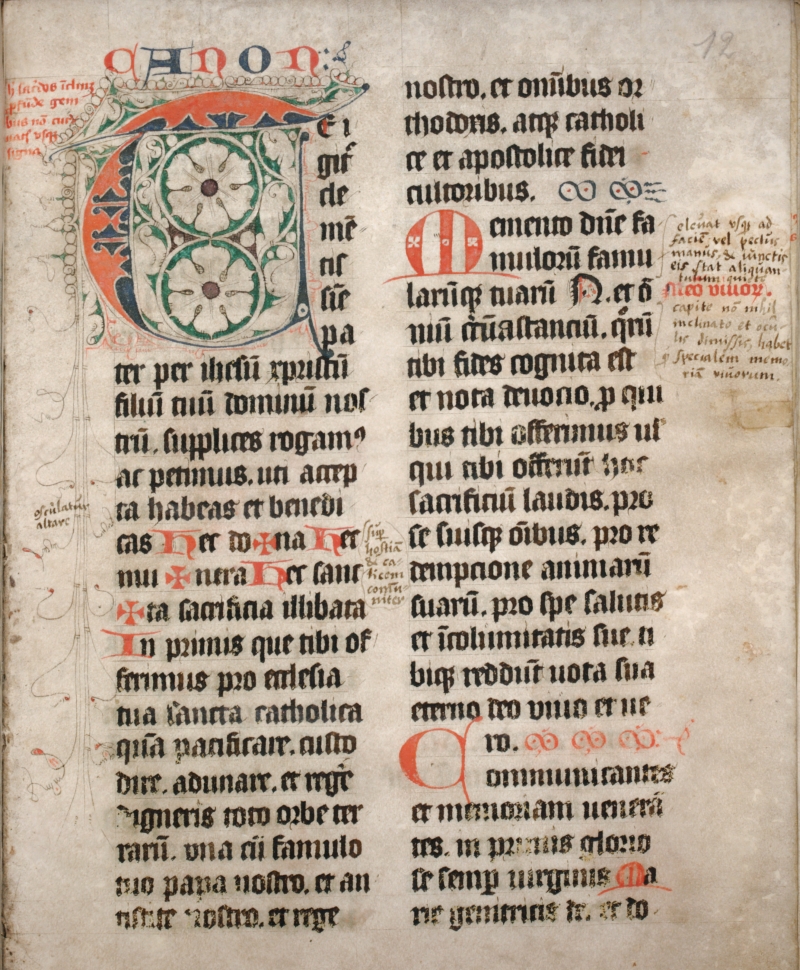 CANON:
12
TE I
git̄
cle
mē
tis
sīe
pa
ter per ihesū xpristū
filiū tuū dominū nos
trū. supplices rogamꝰ
ac petimus. uti accep
ta habeas et benedi
cas Hec do✠na Hec
mu✠nera Hec sanc
✠ta sacrificia illibata
In primis que tibi of
ferimus pro ecclesia
tua sancta catholica
quā pacificare. custo
dire. adunare. et regē
digneris toto orbe ter
rarū. una cū famulo
tuo papa nostro. et an
tistite nostro. et rege
osculatur
altare
sup
hostiā
& ca
licem
commu
niter
nostro. et om̄ibus or
thodoxis. atqꝫ catholi
ce et apostolice fidei
cultoribus.
Memento dn̄e fa
mulorū famu
larūqꝫ tuarū N. et ō
niū cīrcūastanciū. qr̄ū
tibi fides cognita est
et nota deuocio. ꝓ qui
bus tibi offerimus uł
qui tibi offerūt hoc
sacrificiū laudis. pro
se suisqꝫ ōibus. pro re
dempcione animarū
suarū. pro spe salutis
et īcolumitatis sue. ti
biqꝫ reddūt uota sua
eterno deo uiuo et ue
ro.
Communicantes
et memoriam ueneră
tes. in primis glorio
se semꝑ uirginis Ma
rie genitricis dei et do
eleuat vsqꝫ ad
faciē, vel pectus
manus, & iunctis
eis stat aliquan
tulum quiet
Meo viuor.
capite nō nihil
inclinato et ocu
lis dimissis, habet
specialem memo
riā viuorum.